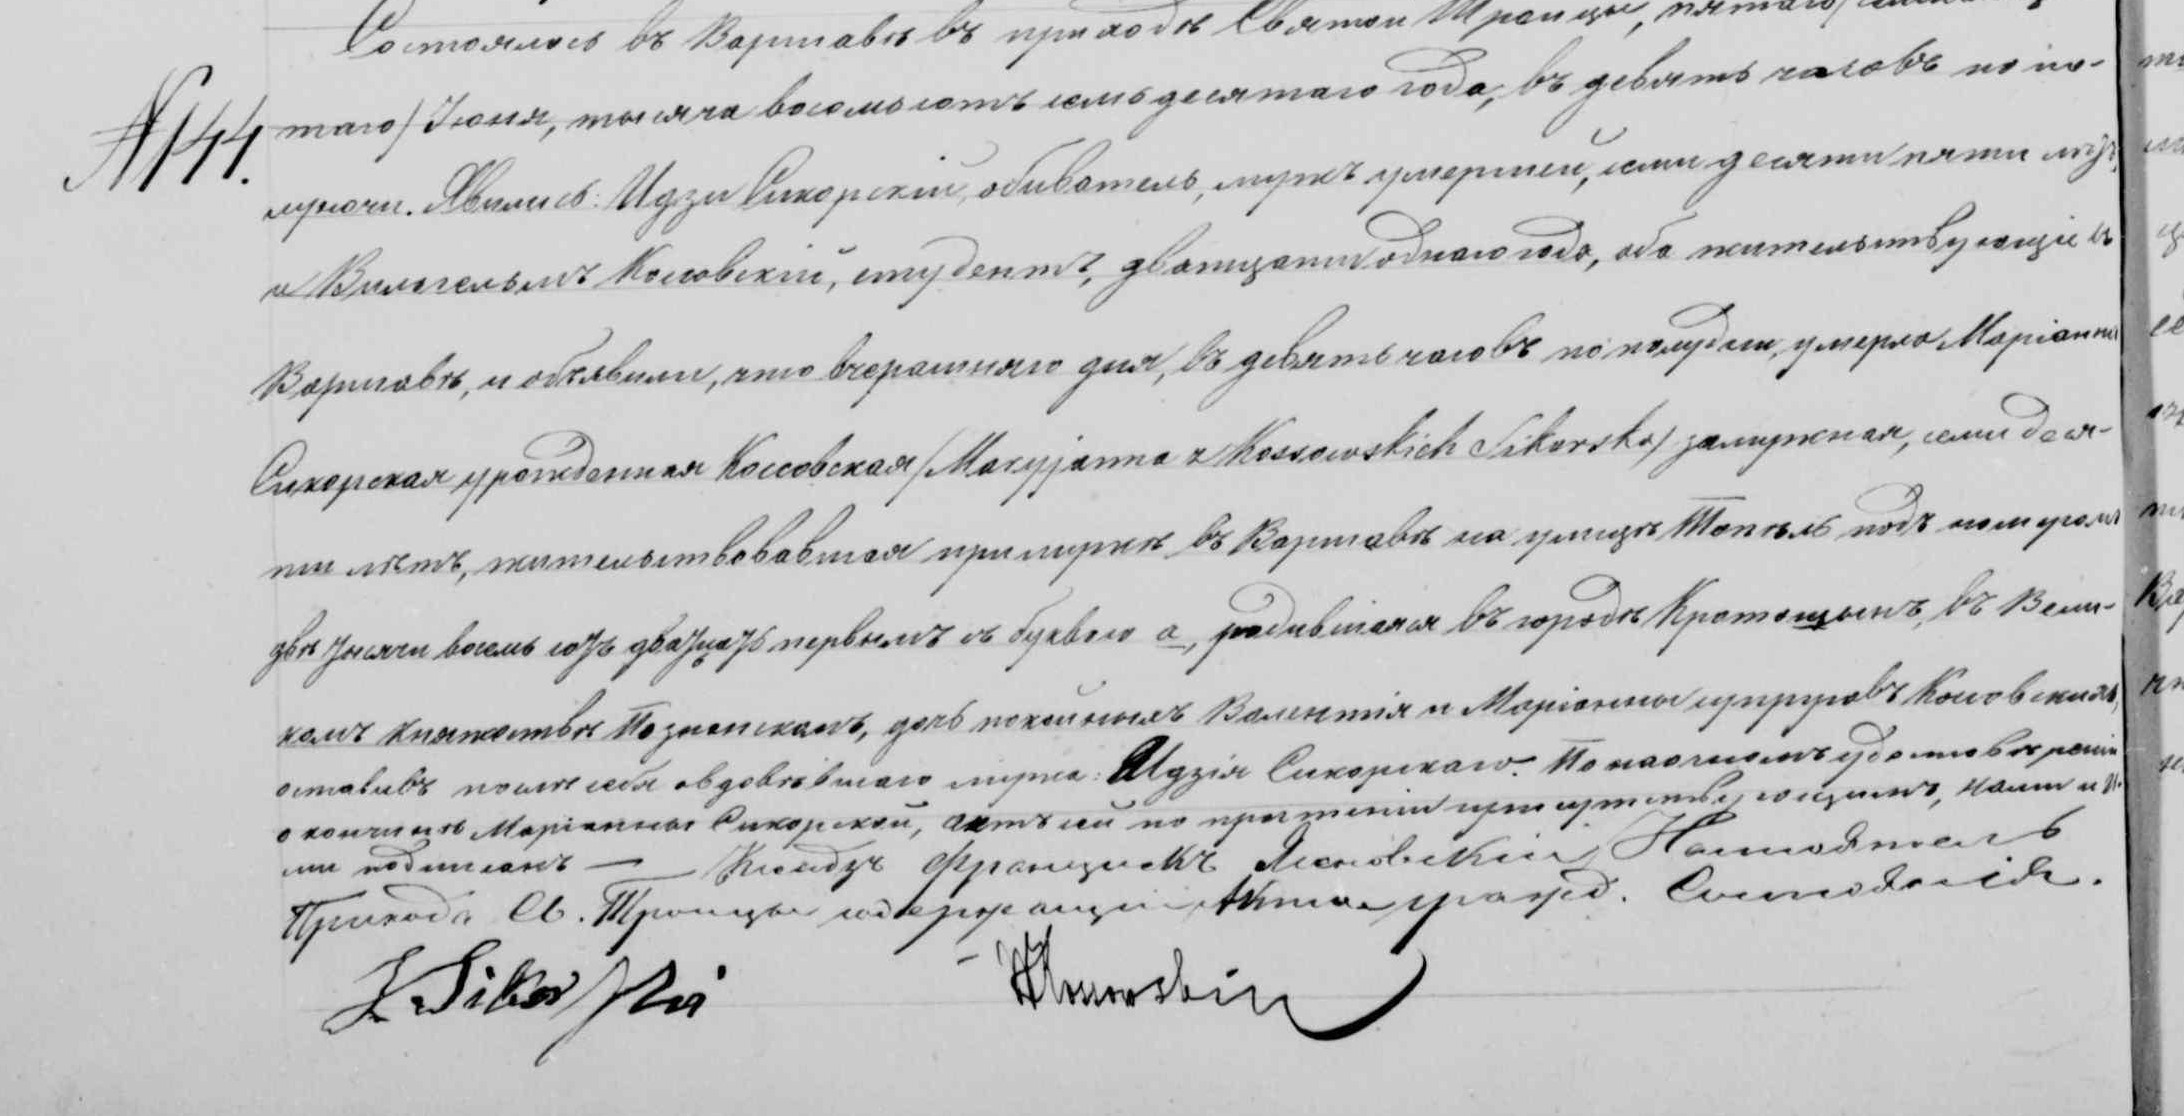 Состоялось въ Варшавѣ въ приходѣ Святой Троицы, пятаго/
№144.
таго/ Іюня, тысяча восемьсотъ семьдесятаго года, въ девять часовъ по по-
луночи. Явились: Идзи Сикорскій, обыватель, мужъ умершей, семидесяти пяти лѣтъ,
и Вильгельмъ Косовскій, студентъ, двадцати однаго года, оба жительствующіе въ
Варшавѣ, и объявили, что вчерашняго дня, въ девять часовъ по полудни, умерла Маріанна
Сикорская урожденная Коссовская /Maryjanna z Kossowskich Sikorska/ замужная, семидеся-
ти лѣтъ, жительствовавшая при мужѣ въ Варшавѣ на улицѣ Тамкѣ подъ номеромъ
двѣ тысячи восемь сотъ двадцать первымъ съ буквою а, родившаяся въ городѣ Кротошынѣ, въ Вели-
комъ Княжествѣ Познанскомъ, дочь покойныхъ Валентія и Маріанны супруговъ Косовскихъ,
оставивъ послѣ себя овдовѣвшаго мужа: Идзія Сикорскаго. По наочномъ удостовѣреніи
о кончинѣ Маріанны Сикорской, актъ сей по прочтеніи присутствующимъ, нами и и-
ми подписанъ — Ксендзъ Францискъ Настоятель
Прихода Св. Троицы содержащій Акты гражд. Состоянія.
Sikorski
WKossowski